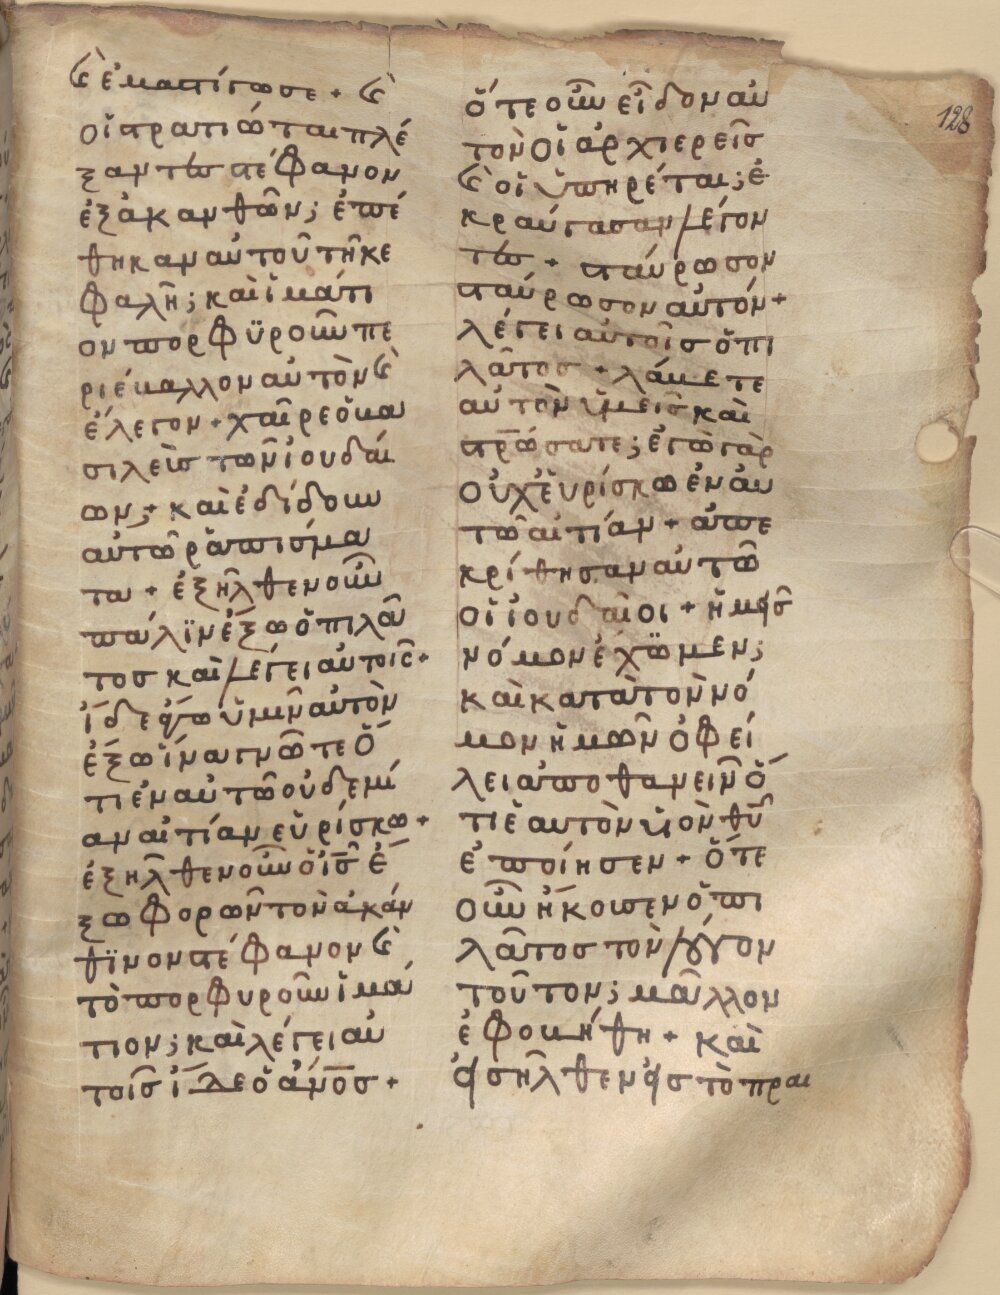 128
ϗ ἐμαστίγωσε + ϗ
οἱ στρατιῶται πλέ
ξαντες στέφανον
ἐξ ἀκανθῶν ; ἐπέ
θηκαν αὐτοῦ τῆ κε
φαλῆ ; καὶ ἱμάτι
ον πορφϋροῦν πε
ριέβαλλον αὐτὸν ϗ
ἔλεγον + χαῖρε ὁ βα
σιλεὺς τῶν ἰουδαί
ων ; + καὶ ἐδίδουν
αὐτῶ ῥαπίσμα
τα + ἐξῆλθεν οῦν
πάλϊν ἔξω ὁ πιλᾶ
τος καὶ λέγει αὐτοις +
ἴδε ἄγω ὑμῖν αὐτὸν
ἔξω ἵνα γνῶτε ὅ
τι ἐν αὐτῶ οὐδεμί
αν αἰτίαν εὑρίσκω +
ἐξῆλθεν οῦν ὁ ι̅ς̅ ἔ
ξω φορῶν τὸν ἀκάν
θϊνον στέφανον ϗ
τὸ πορφυροῦν ἱμά
τιον ; καὶ λέγει αὐ
τοῖς ἴδε ὁ α̅ν̅ο̅ς +
ὅτε οῦν εἶδον αὐ
τὸν οἱ ἀρχιερεῖς
ϗ οἱ ὑπηρέται ; ἐ
κραύγασαν λέγον
τες + σταύρωσον
σταύρωσον αὐτόν +
λέγει αὐτοῖς ὁ πι
λᾶτος + λάβετε
αὐτὸν ὑμεῖς καὶ
στρώσατε ; ἐγὼ γὰρ
οὐχ εὑρίσκω ἐν αὐ
τῶ αἰτίαν + ἀπε
κρίθησαν αὐτῶ
οἱ ἰουδαῖοι + ἡμεῖς
νόμον ἔχωμεν ;
καὶ κατὰ τὸν νό
μον ἡμῶν ὀφεί
λει ἀποθανεῖν ὅ
τι ἑαυτὸν υἱὸν θ̅υ̅
ἐποίησεν + ὅτε
οῦν ἤκουσεν ὁ πι
λᾶτος τὸν λόγον
τοῦτον ; μᾶλλον
ἐφοβήθη + καὶ
εἰσῆλθεν εἰς τὸ πραι